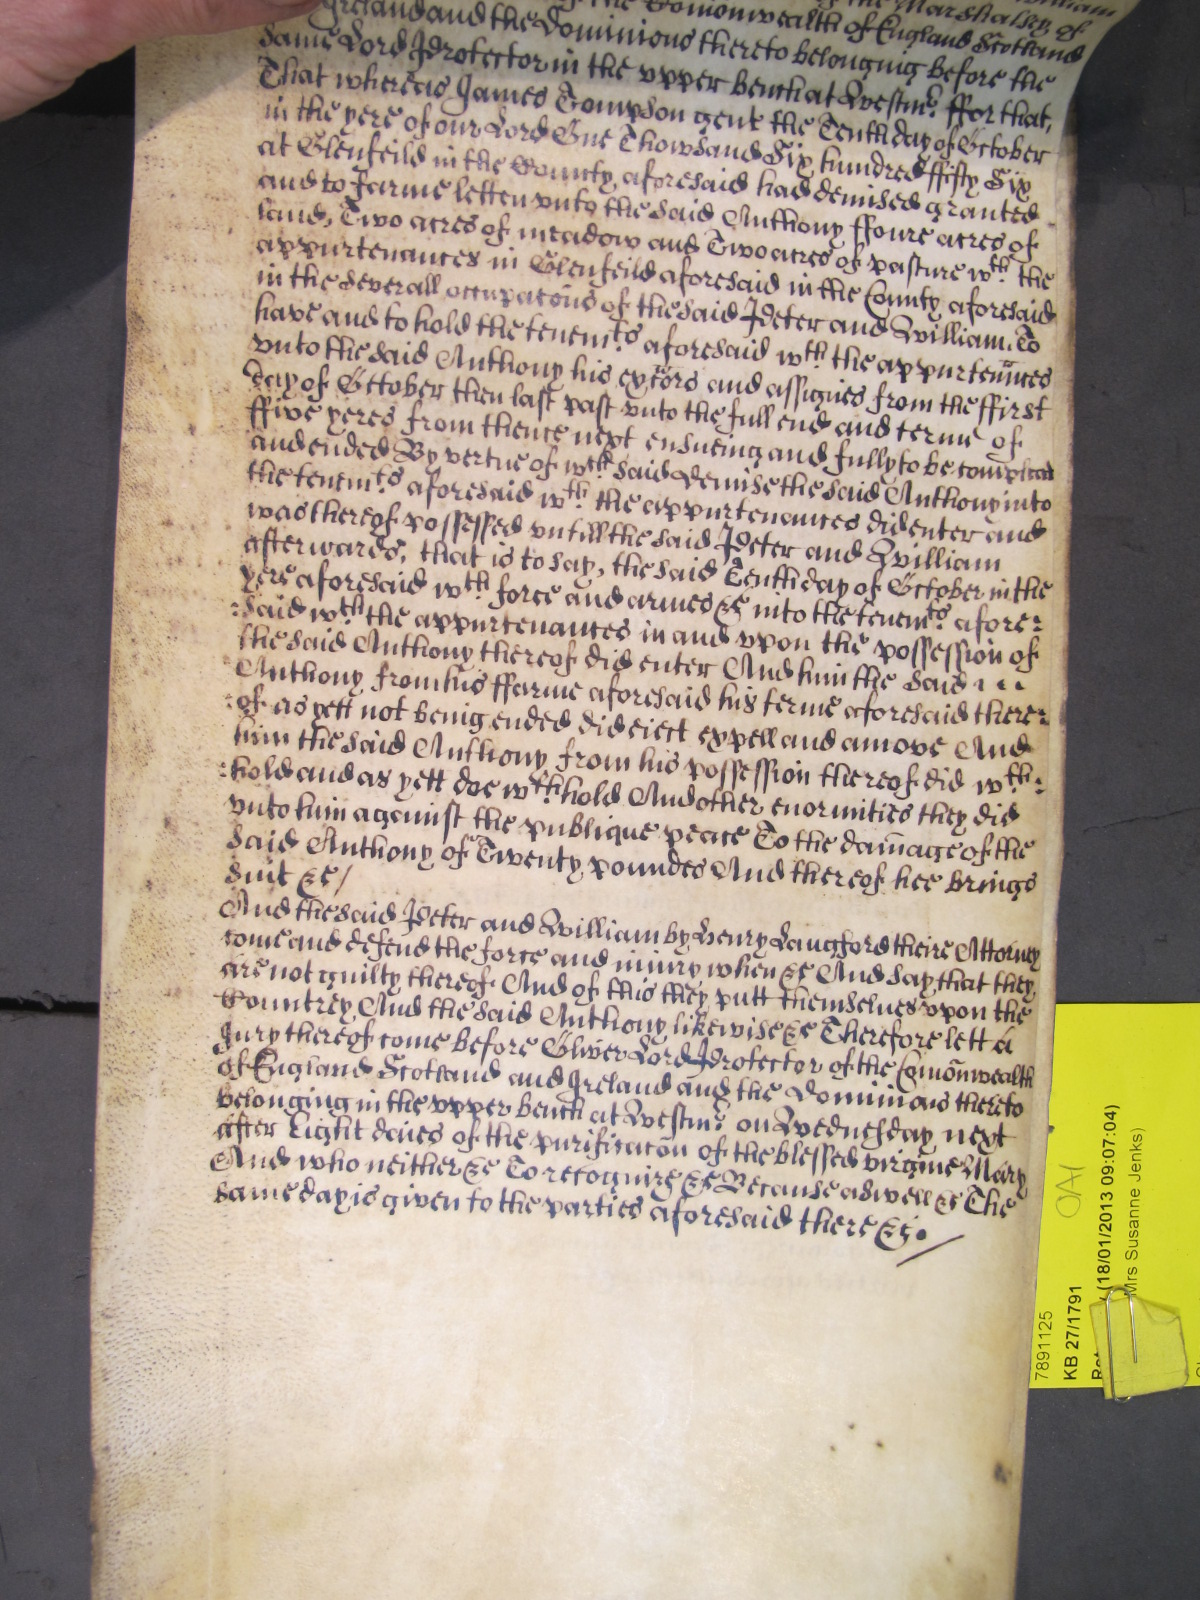 the Marshalsy of
the Comonwealth of England Scotland
Ireland and the Dominions thereto belonging before the
same Lord Protector in the upper bench at Westmr. ffor that,
That whereas James Tompson gent the Tenth day of October
in the yere of our Lord One Thowsand Six hundred ffifty Six
at Glenfeild in the County aforesaid had demised granted
and to farme letten vnto the said Anthony ffoure acres of
land, Two acres of meadow and Two acres of pasture wth. the
appurtenances in Glenfeild aforesaid in the County aforesaid
in the severall occupacōns of the said Peter and William. To
have and to hold the tenemts. aforesaid wth. the appurtenn̄ces
vnto the said Anthony his exc̄tors and assignes from the ffirst
day of October then last past vnto the full end and terme of
ffive yeres from thence next ensueing and fully to be compleat
and ended By vertue of wch. said demise the said Anthony into
the tenemts. aforesaid wth. the appurtenances did enter and
was thereof possessed vntill the said Peter and William
afterwards, that is to say, the said Tenth day of October in the
yere aforesaid wth. force and armes &c into the tenemts. afore:
:said wth. the appurtenances in and vpon the possession of
the said Anthony thereof did enter And him the said
Anthony from his ffarme aforesaid his terme aforesaid there:
:of as yett not being ended did eiect expell and amove And
him the said Anthony from his possession thereof did wth:
:hold and as yett doe wth:hold And other enormities they did
vnto him against the publique peace To the dam̄age of the
said Anthony of Twenty poundes And thereof hee brings
suit &c/
And the said Peter and William by Henry Langford theire Attorney
come and defend the force and iniury when &c And say that they
are not guilty thereof And of this they putt themselues vpon the
Countrey, And the said Anthony likewise &c Therefore lett a
Jury thereof come before Oliver Lord Protector of the Com̄onwealth
of England Scotland and Ireland and the Dominions thereto
belonging in the vpper bench at Westmr. on Wednesday next
after Eight daies of the purificac̄on of the blessed virgine Mary
And who neither &c To recognize &c Because aswell &c The
same day is given to the parties aforesaid there &c.
7891125
KB 27/1791
(18/01/2013 09:07:04)
Mrs Susanne Jenks)